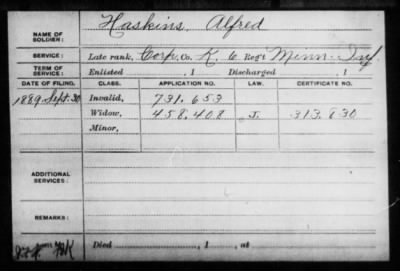 Haskins, Alfred
NAME OF SOLDIER:
SERVICE: Late rank, Corp, Co. K, 6 Reg't Minn. Inf.
TERM OF SERVICE: Enlisted , 1 Discharged , 1
DATE OF FILING. CLASS. APPLICATION NO. LAW. CERTIFICATE NO.
1889 Sept. 30 Invalid, 731.653
Widow, 458.408 J. 313.830
Minor,
ADDITIONAL SERVICES:
REMARKS:
Died , 1 , at